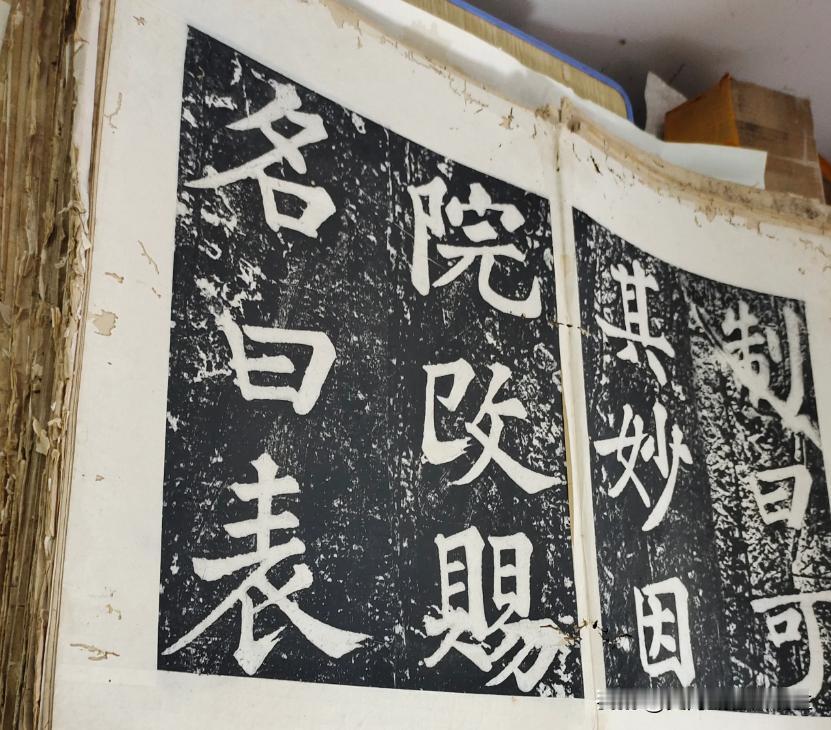 制曰可
其妙因
院改賜
名曰表